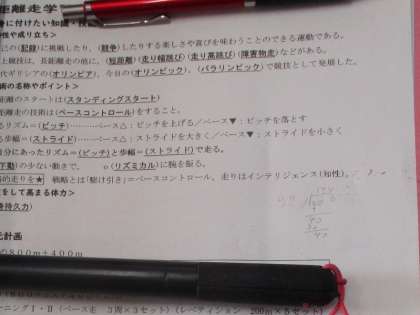 距離走学
身に付けたい知識・技
性や成り立ち＞
己の(記録)に挑戦したり、(競争)したりする楽しさや喜びを味わうことのできる運動である。
上競技は、長距離走の他に、(短距離)(走り幅跳び)(走り高跳び)(障害物走)などがある。
代ギリシアの(オリンピア)、今日の(オリンピック)、(パラリンピック)で競技として発展した。
術の名称やポイント＞
距離のスタートは(スタンディングスタート)
距離走の技術は(ペースコントロール)をすること。
るリズム=(ピッチ)………ペース△：ピッチを上げる／ペース▼：ピッチを落とす
る歩幅=(ストライド)……ペース△：ストライドを大きく／ペース▼：ストライドを小さく
自分にあったリズム=(ピッチ)と歩幅=(ストライド)で走る。
下動)の少ない動きで、 o(リズミカル)に腕を振る。
的走りを★ 戦略とは「駆け引き」＝ペースコントロール、走りはインテリジェンス(知性)。
をして高まる体力＞
持久力)
元計画
の800m＋400m
ーニングⅠ・Ⅱ（ペース走 3周×3セット）（レペティション 200m×5セット）